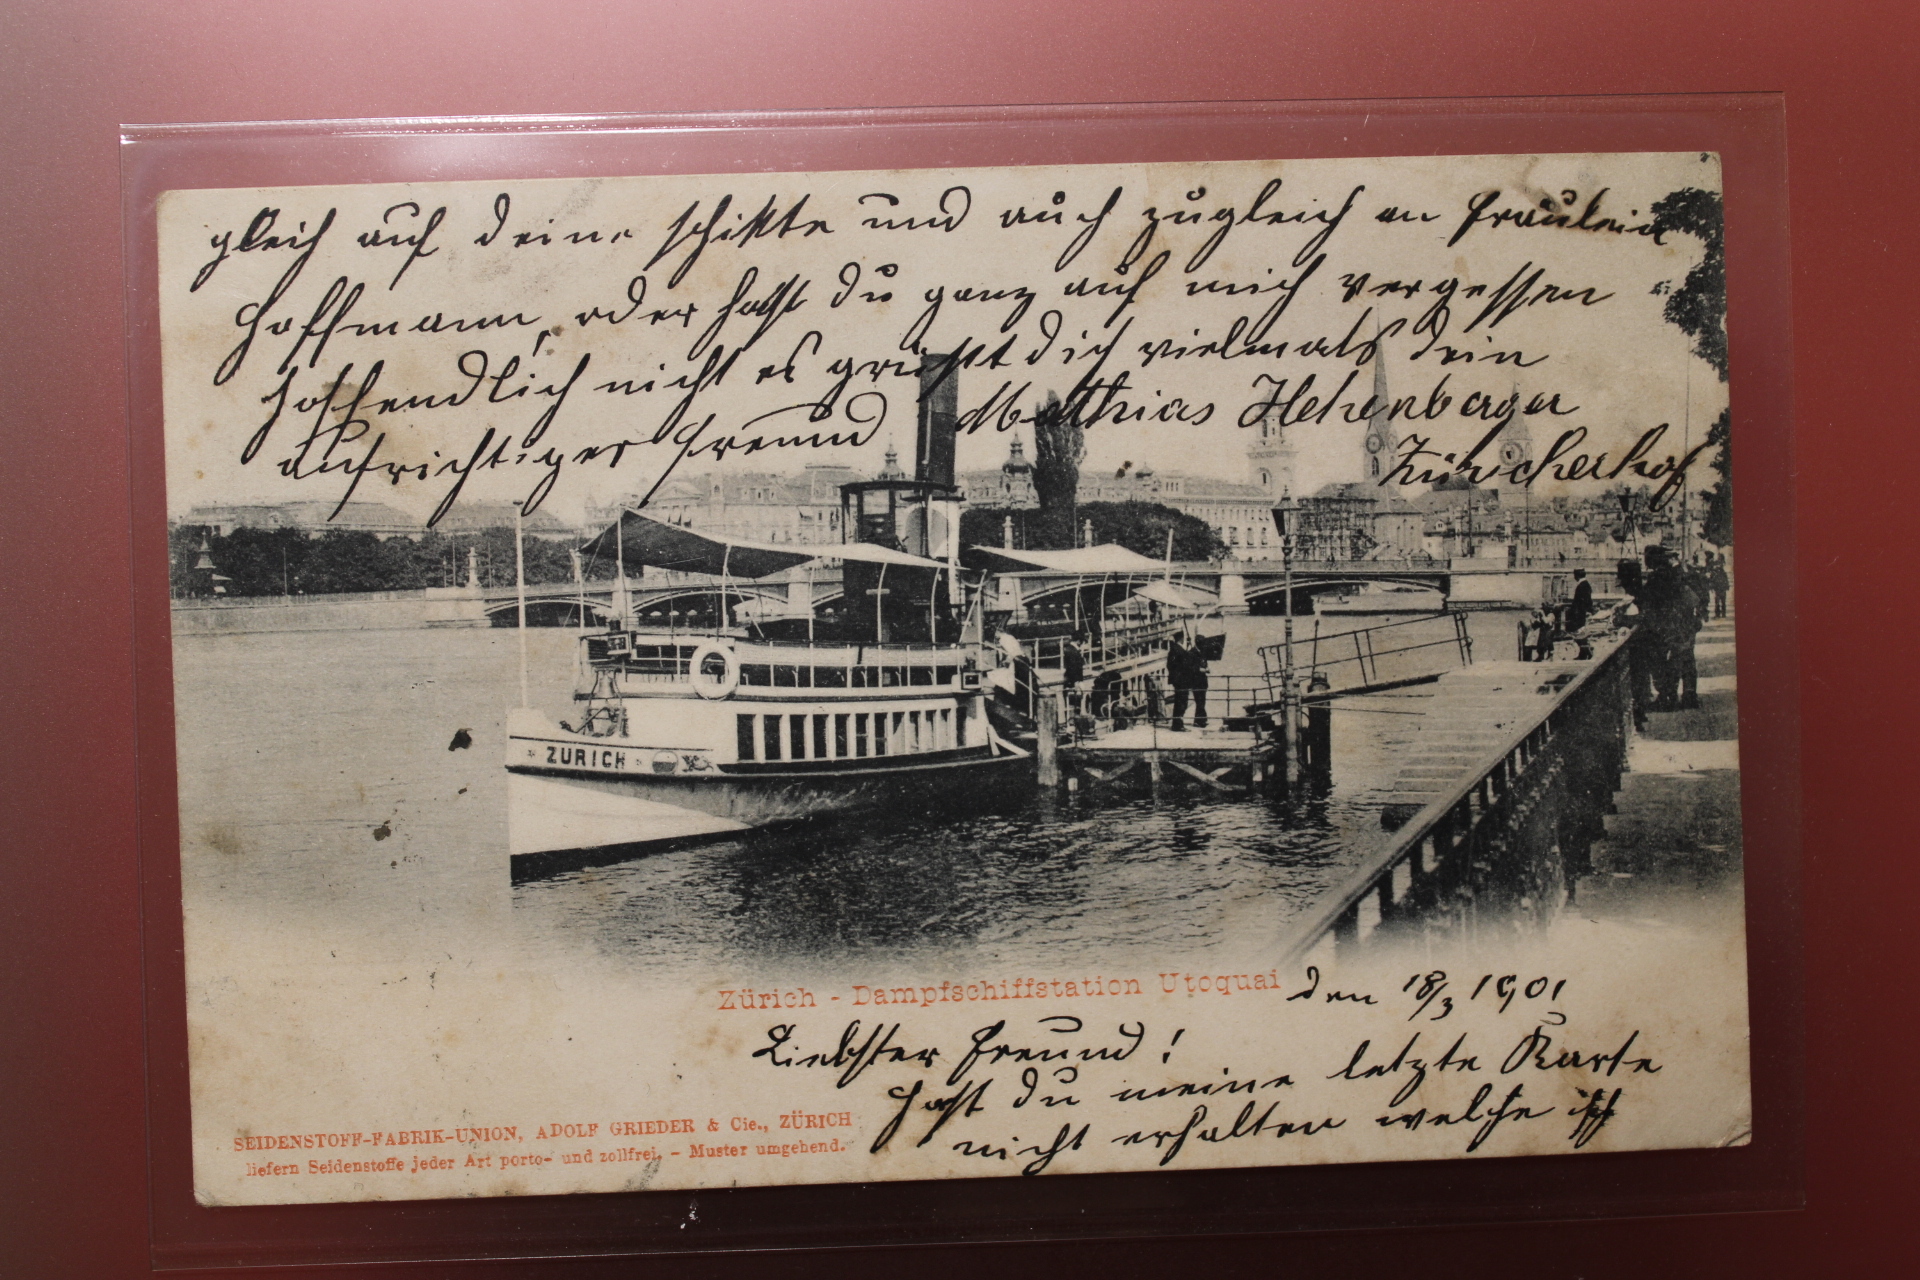 gleich auf deine schikte und auch zugleich an Fräulein
Hoffmann, oder hast du ganz auf mich vergessen
hoffendlich nicht es grüßt dich vielmals dein
aufrichtiger Freund Mathias Hehenberger
Zürcherhof
ZÜRICH
Zürich - Dampfschiffstation Utoquai
den 18/3 1901
Liebster Freund!
Hast du meine letzte Karte
nicht erhalten welche ich
SEIDENSTOFF-FABRIK-UNION, ADOLF GRIEDER & Cie., ZÜRICH
liefern Seidenstoffe jeder Art porto- und zollfrei. - Muster umgehend.